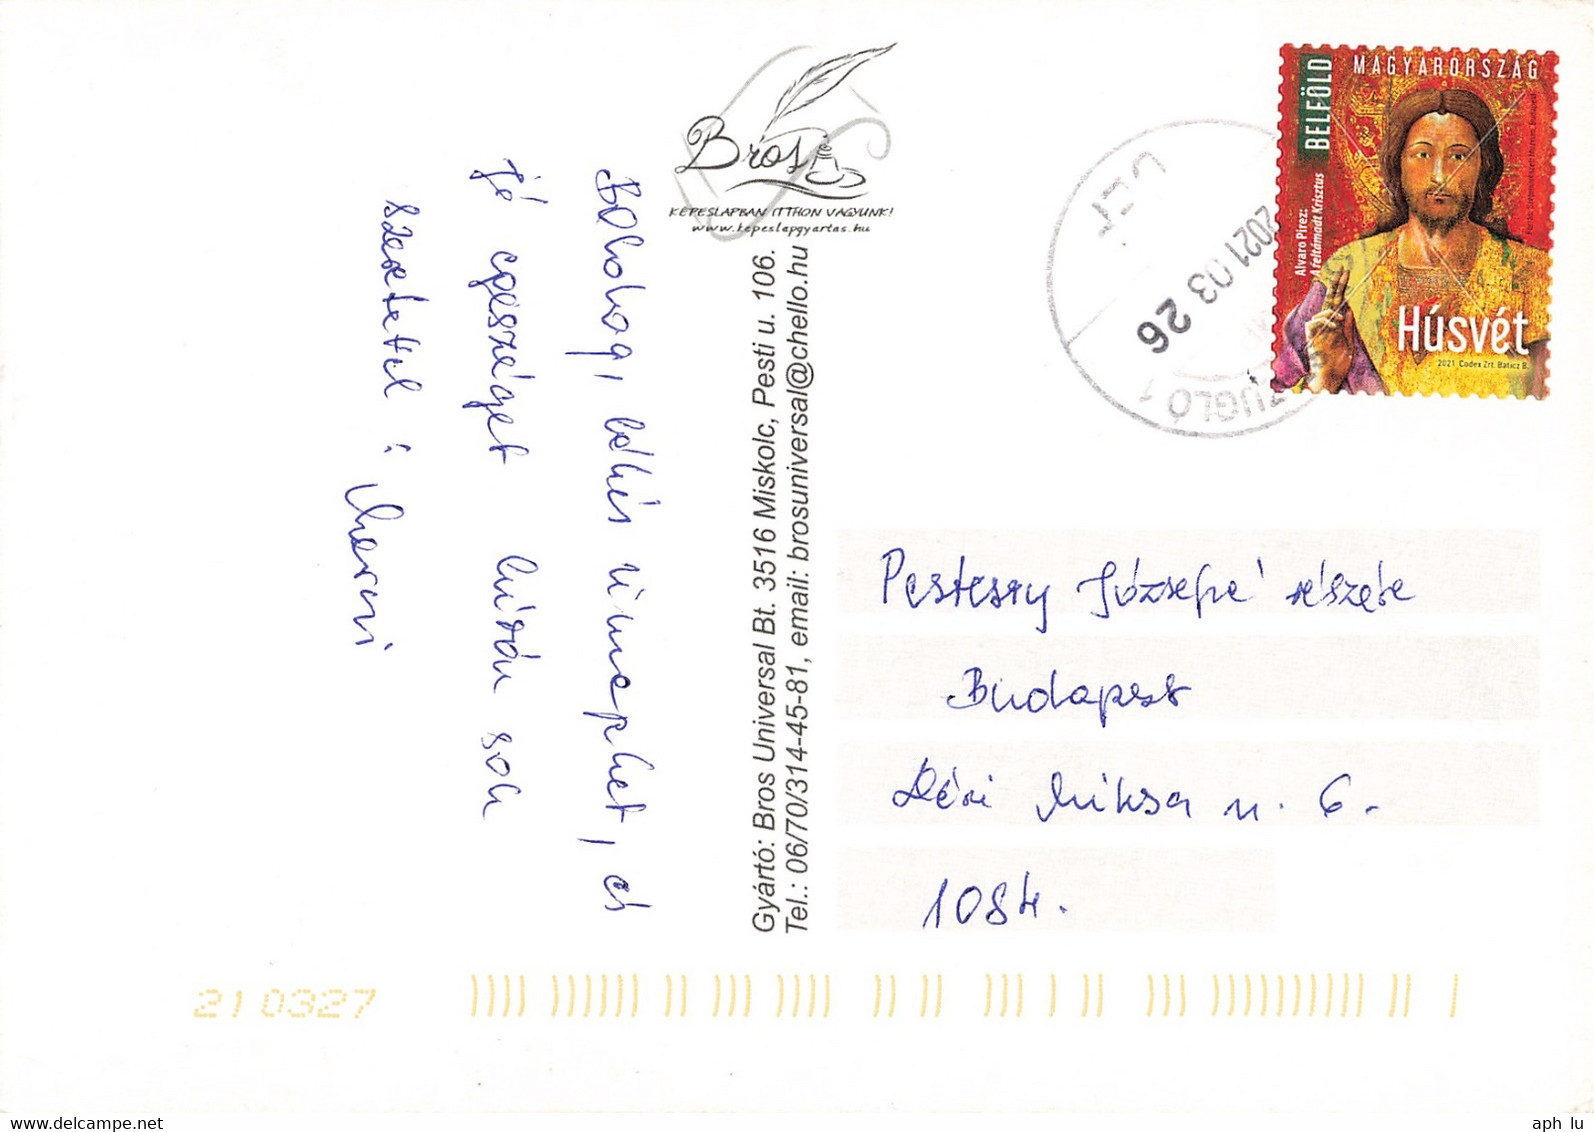 Bros
KÉPESLAPBAN ITTHON VAGYUNK!
www.kepeslapgyartas.hu
Boldog, békés ünnepket, és
jó egészséget kíván sok
szeretettel :
Gyártó: Bros Universal Bt. 3516 Miskolc, Pesti u. 106.
Tel.: 06/70/314-45-81, email: brosuniversal@chello.hu
2021 03 26
ZUGLÓ 1
BELFÖLD
MAGYARORSZÁG
Alvaro Pirez:
A feltámadt Krisztus
Húsvét
2021 Codex Zrt. Baticz B.
József részére
Budapest
Déri Miksa u. 6.
1084.
210327
aph_lu